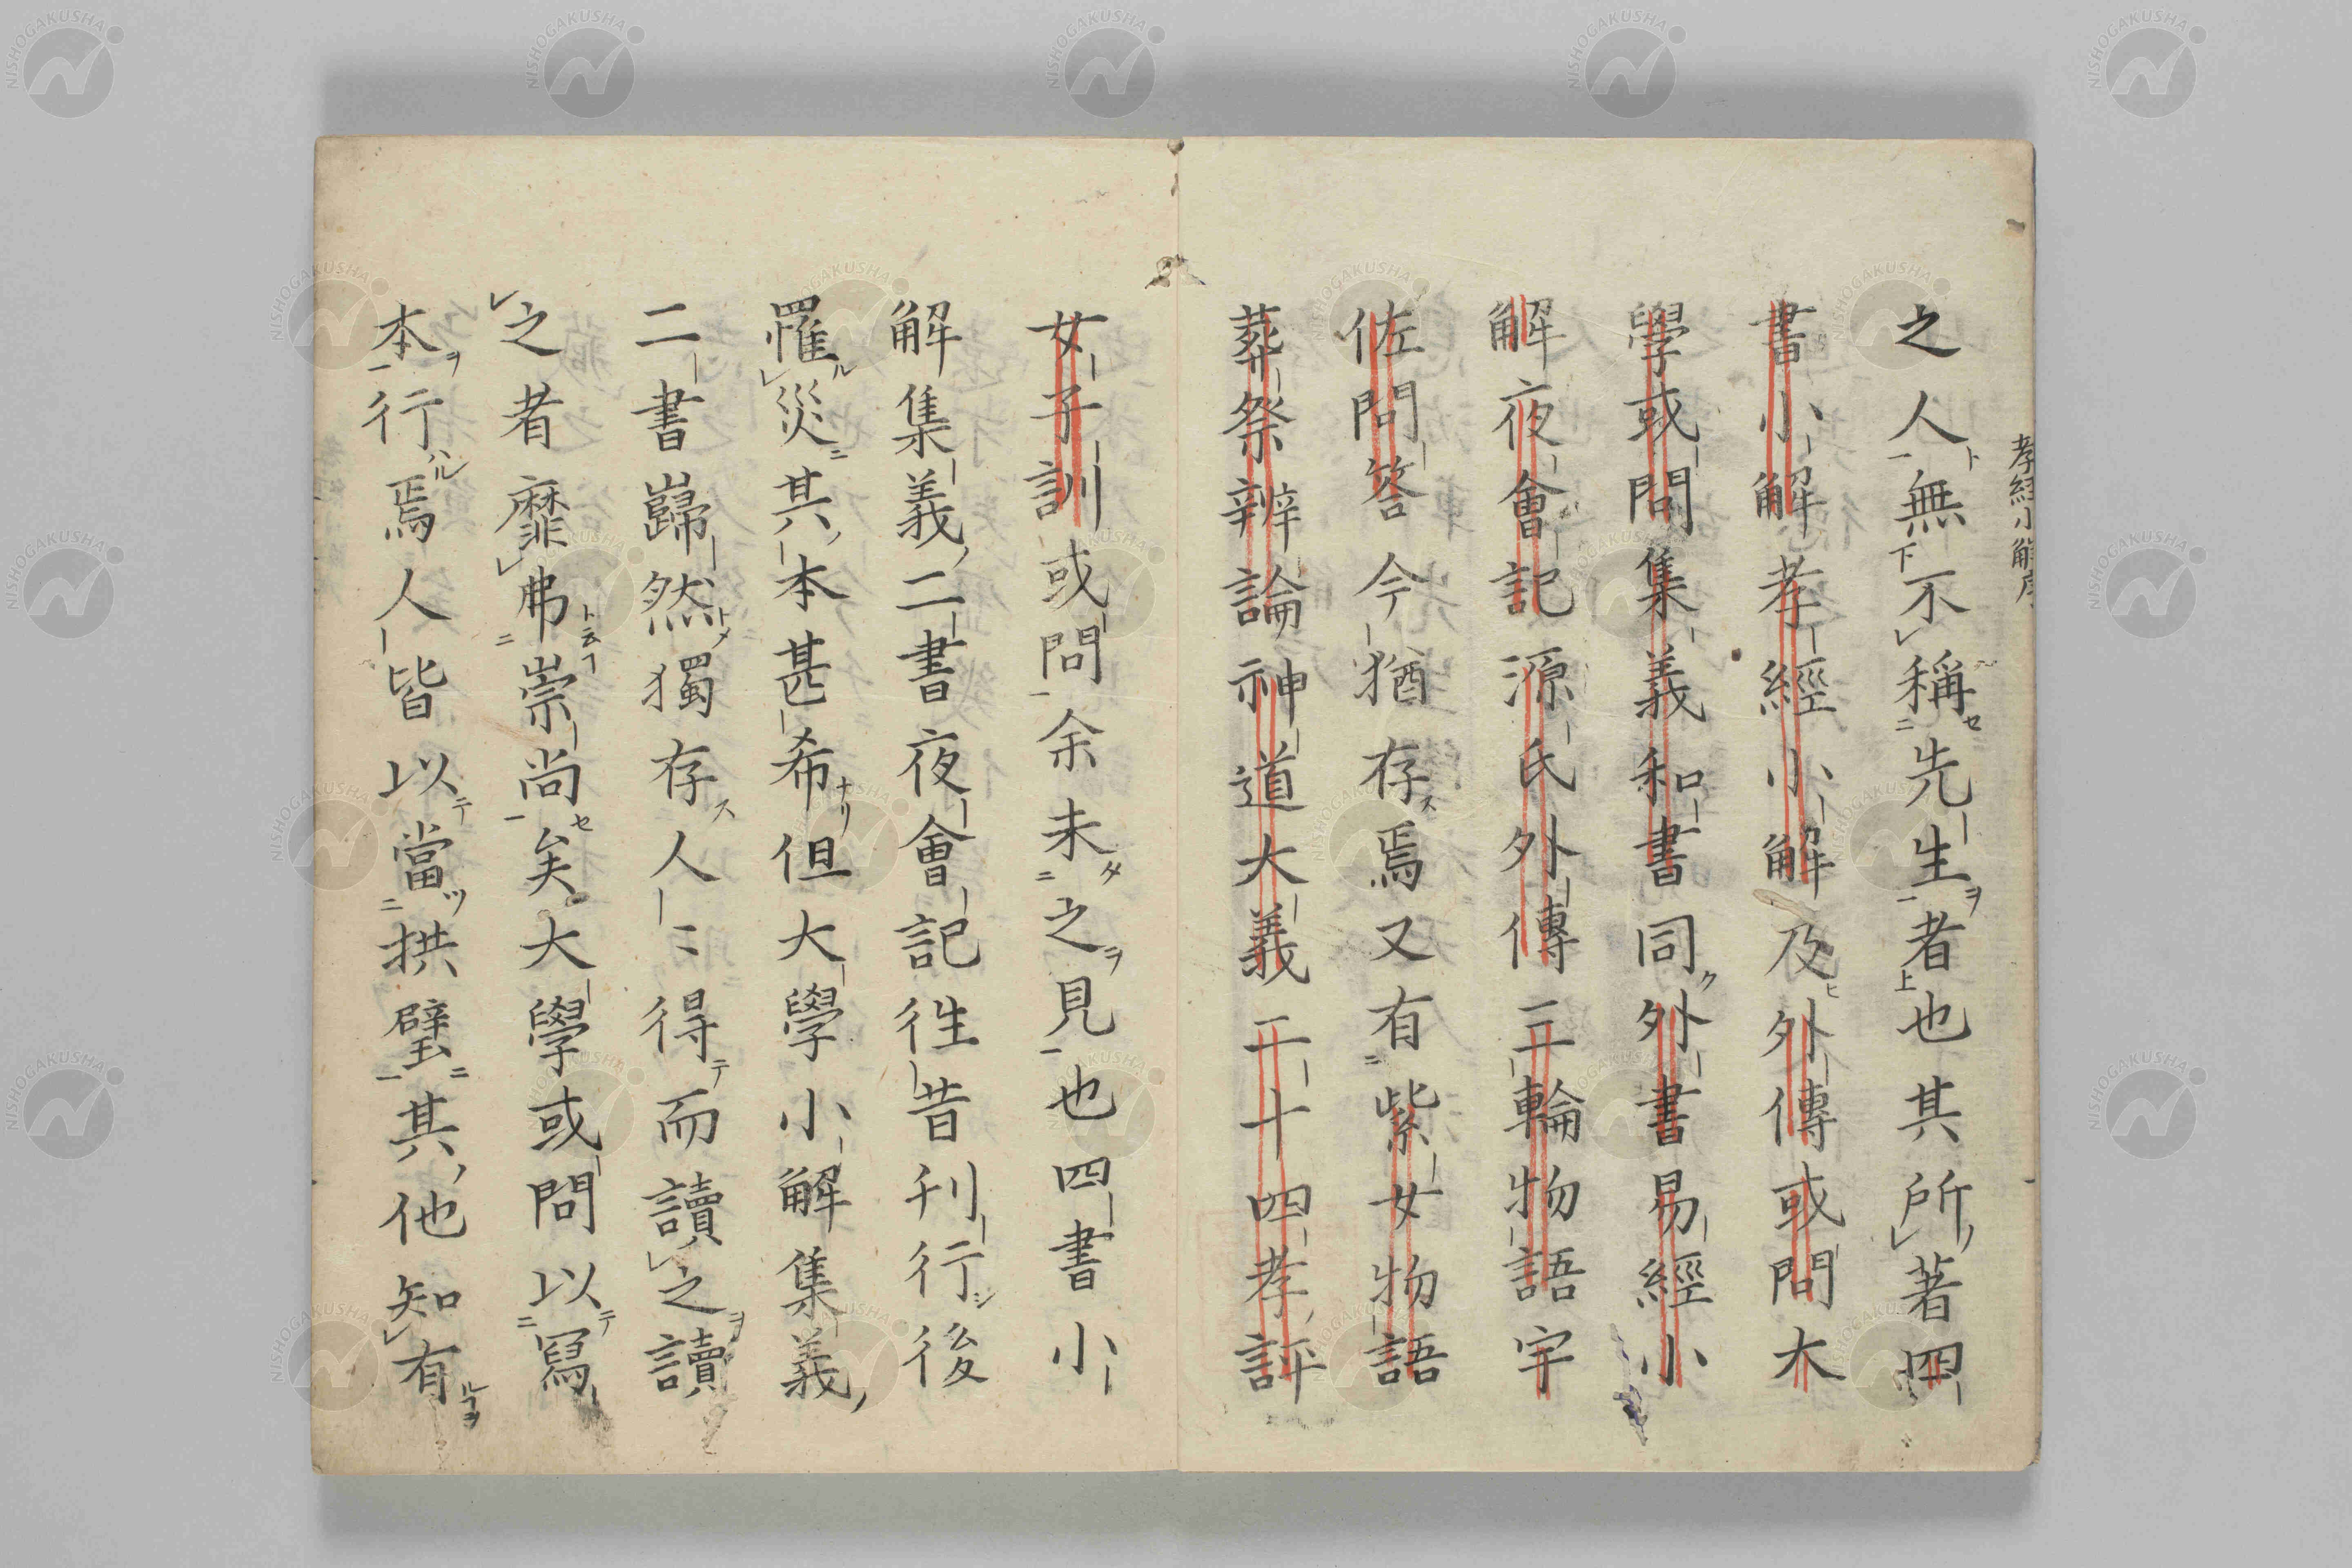 孝經小解序
之人無不稱先生者也其所著四
書小解孝經小解及外傳或問大
學或問集義和書同外書易經小
解夜會記源氏外傳三輪物語宇
佐問答今猶存焉又有紫女物語
葬祭辨論神道大義二十四孝評
女子訓或問余未之見也四書小
解集義二書夜會記徃昔刊行後
罹災其本甚希但大學小解集義
二書巋然獨存人〻得而讀之讀
之者靡弗崇尚矣大學或問以寫
本行焉人皆以當拱璧其他知有
NISHOGAKUSHA